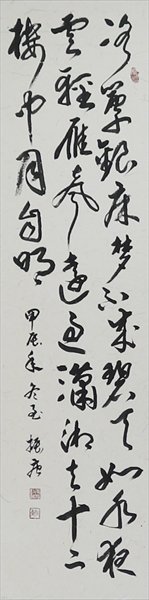 冰簟銀床夢不成碧天如水夜
雲輕雁聲遠過瀟湘去十二
樓中月自明
甲辰年冬至 振